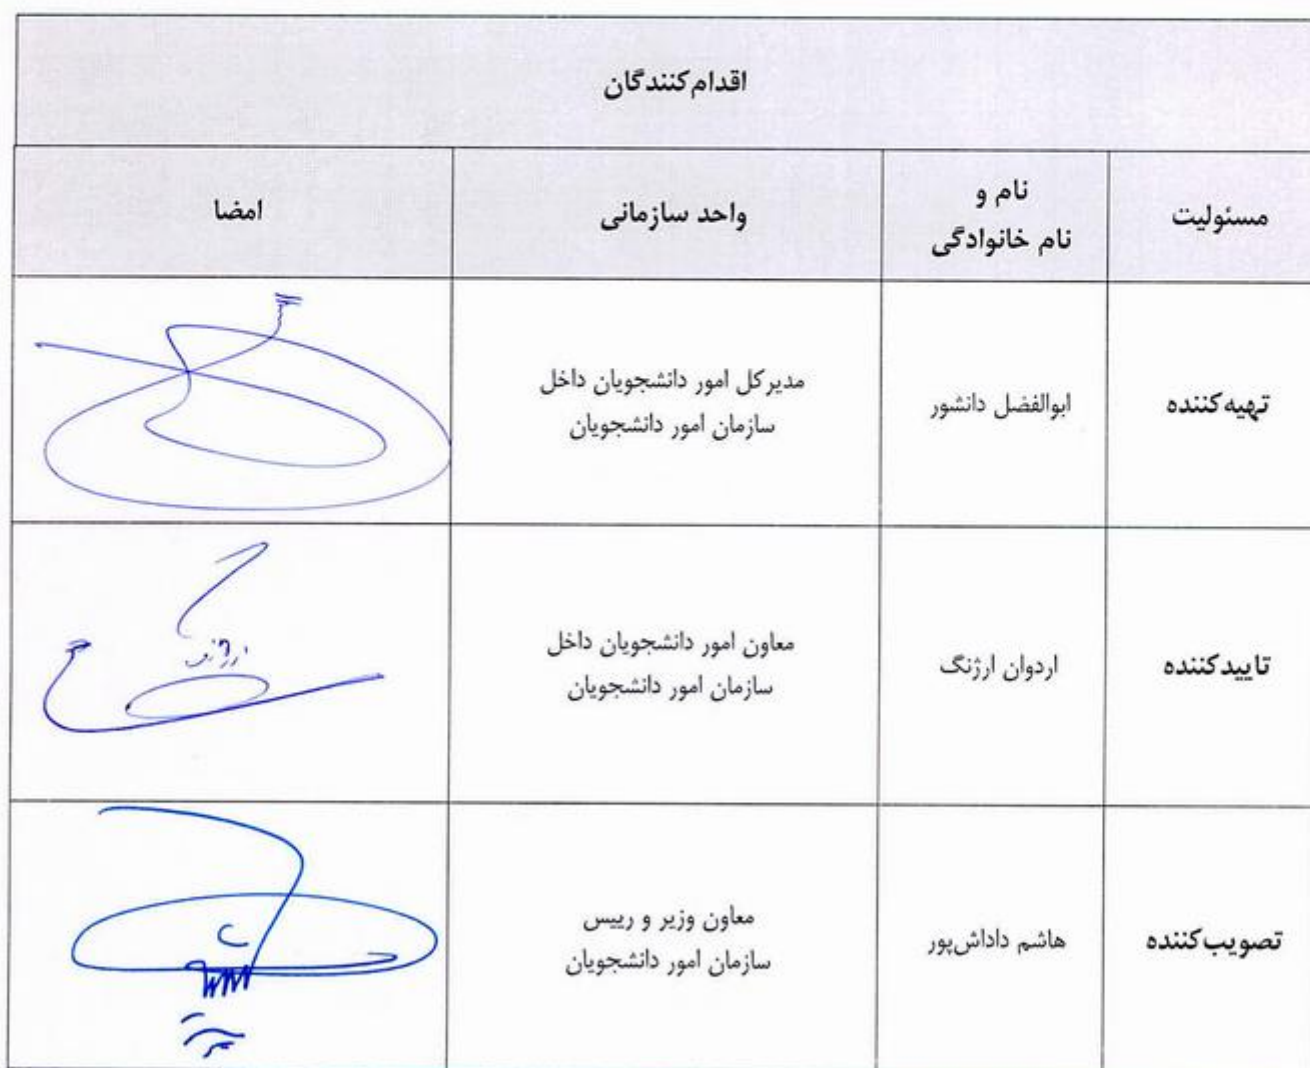 اقدام‌کنندگان
مسئولیت
نام و
نام خانوادگی
واحد سازمانی
امضا
تهیه‌کننده
ابوالفضل دانشور
مدیرکل امور دانشجویان داخل
سازمان امور دانشجویان
تاییدکننده
اردوان ارژنگ
معاون امور دانشجویان داخل
سازمان امور دانشجویان
ارژنگ
تصویب‌کننده
هاشم داداش‌پور
معاون وزیر و رییس
سازمان امور دانشجویان